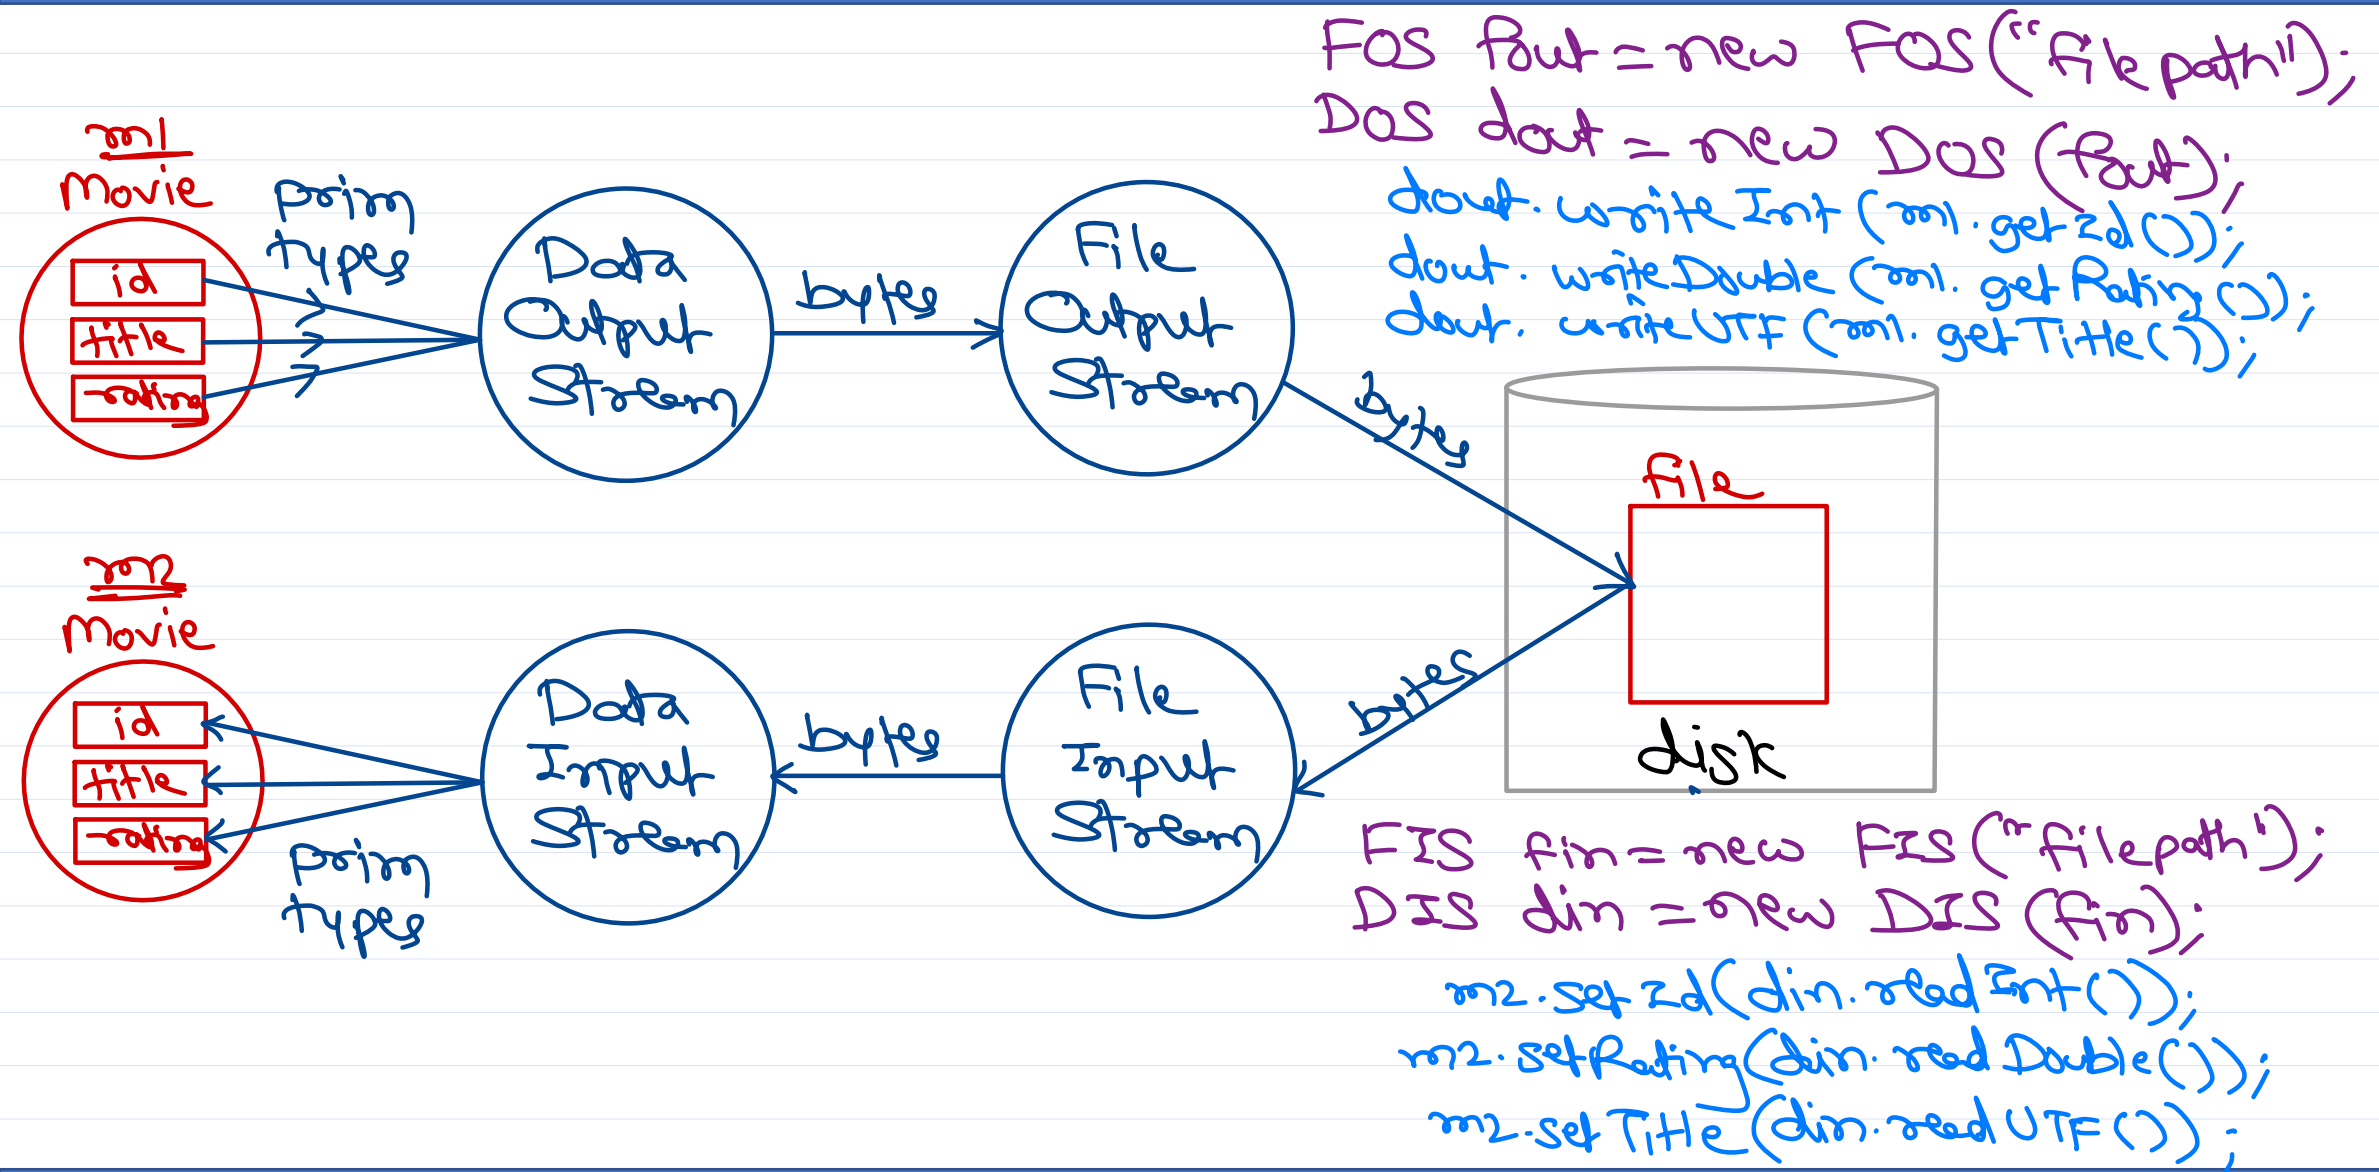 FOS fout = new FOS("filepath");
DOS dout = new DOS (fout);
dout. writeInt (m1.getId());
dout. writeDouble (m1. getRating());
dout. writeUTF (m1. getTitle());
m1
Movie
id
title
rating
prim
types
Data
Output
Stream
bytes
File
Output
Stream
bytes
file
disk
m2
Movie
id
title
rating
prim
types
Data
Input
Stream
bytes
File
Input
Stream
bytes
FIS fin = new FIS ("filepath");
DIS din = new DIS (fin);
m2.setId(din.readInt());
m2.setRating(din.readDouble());
m2.setTitle(din.readUTF());